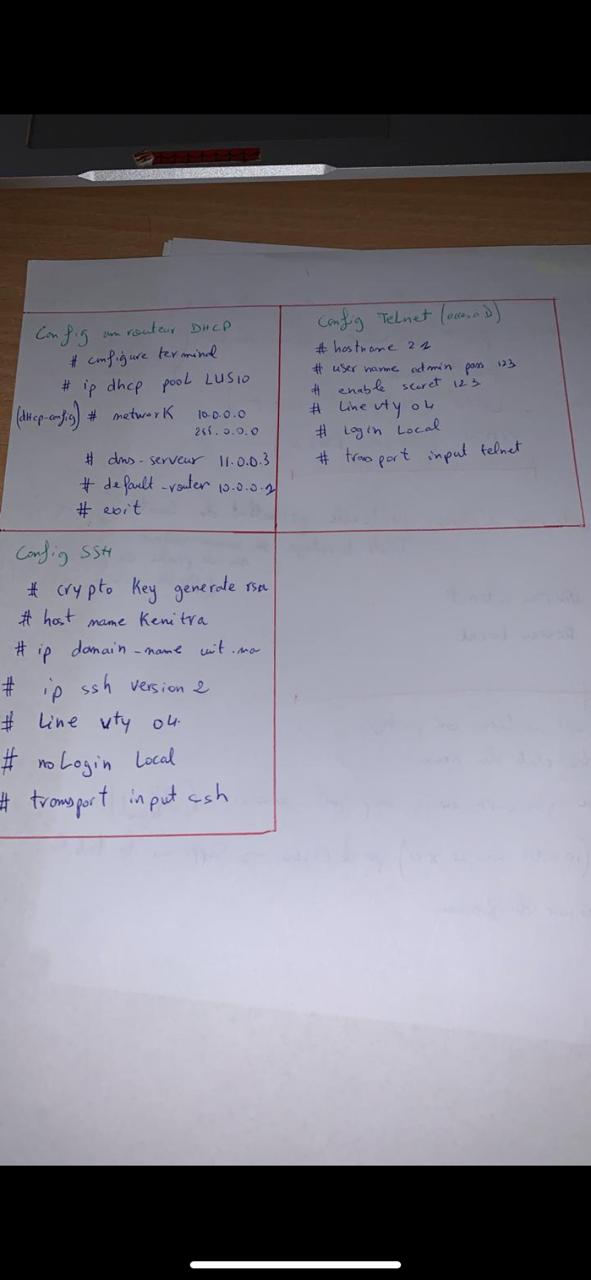 Config un routeur DHCP
# configure terminal
# ip dhcp pool LUS10
(dhcp-config) # network 10.0.0.0
255.0.0.0
# dns-serveur 11.0.0.3
# default-router 10.0.0.2
# exit
Config Telnet
# hostname
# user name admin pass 123
# enable secret 123
# Line vty 04
# Login Local
# transport input telnet
Config SSH
# crypto Key generate rsa
# host name Kenitra
# ip domain-name uit.ma
# ip ssh version 2
# Line vty 04
# no Login Local
# transport input ssh